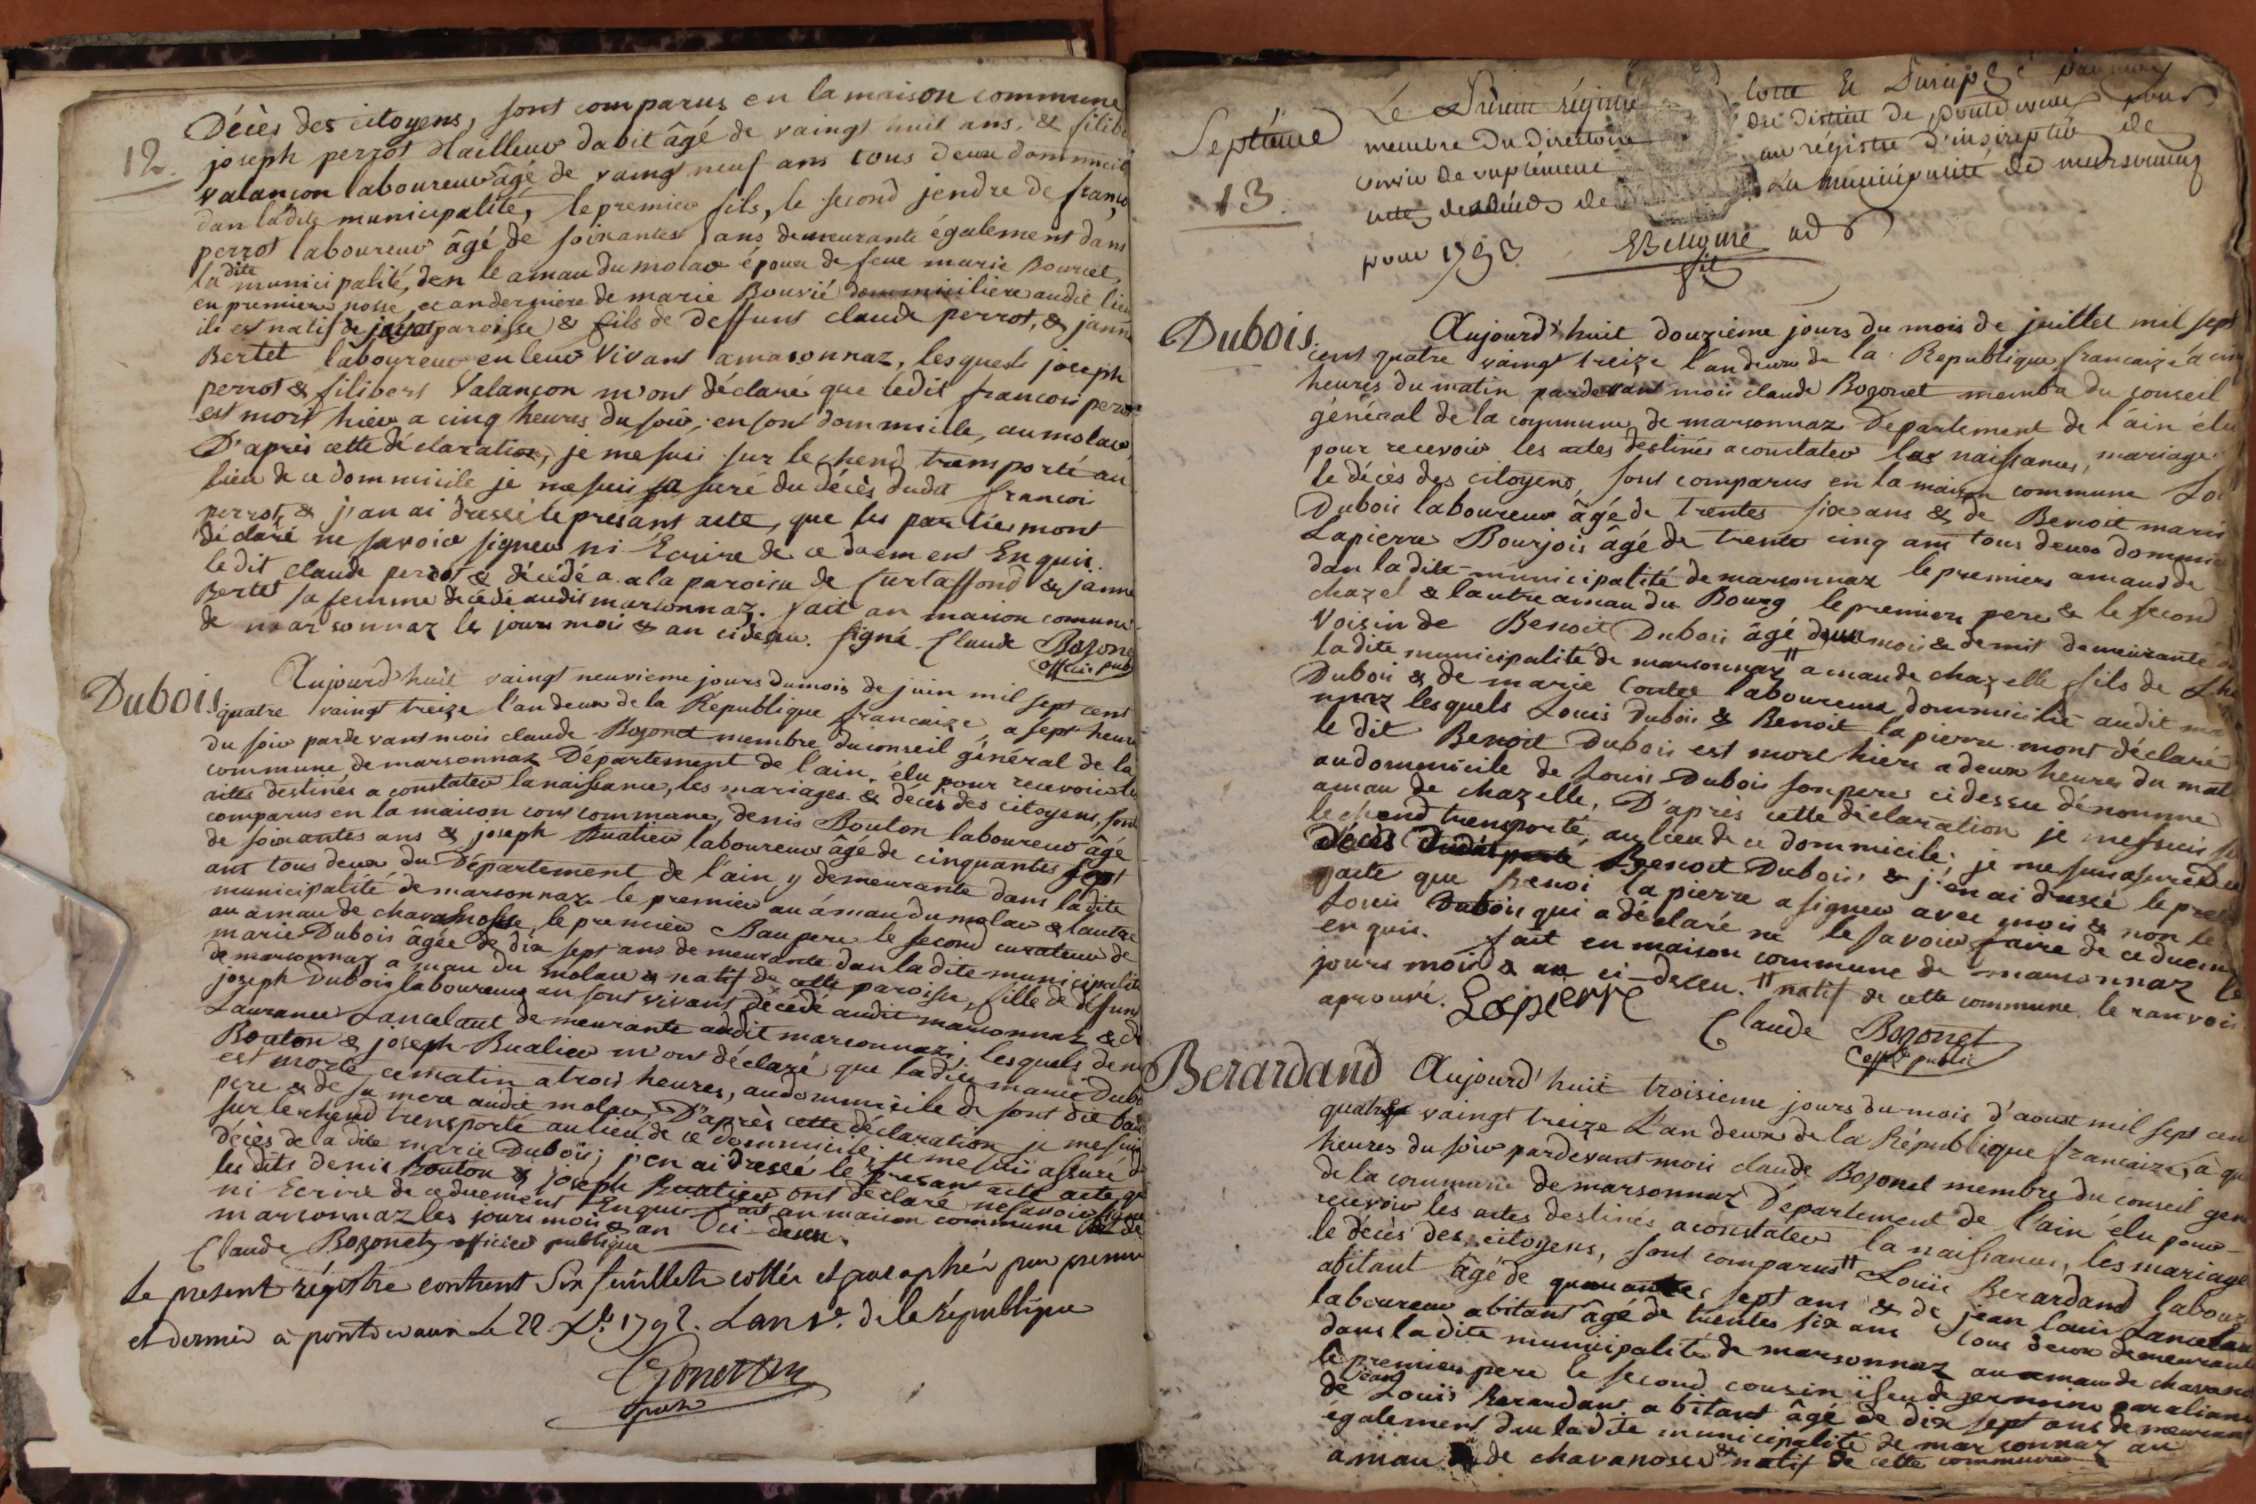 12.
Décès des citoyens, sont comparus en la maison commune
joseph perrot tailleur dabit âgé de vaingt huit ans, & filibe
valançon laboureur âgé de vaingt neuf ans tous deux dommicil
dan ladite municipalité, le premier fils, le second jendre de franco
perrot laboureur âgé de soixantes ans demeurante également dans
la dite municipalité, den le amau du molar épouu de feue marie Bourcel,
en premiere nosse, et an derniere de marie Bouvié dommiciliere audit lieu
ile est natif de paroisse & fils de deffunt claude perrot, & janne
Bertet laboureur en leur vivant a marsonnaz, lesquels joseph
perrot & filibert valançon m'ont déclaré que ledit francois perot
est mort hier a cinq heures du soir, en son dommicille, au molard
D'après cette déclaration, je me suis sur le chend transporté au
lieu de ce dommicile je me suis assuré du décès dudit francoi
perrot & j'an ai dressé le présant acte, que les parties mont
déclaré ne savoir signer ni Ecrire de ce duement Enquis.
ledit claude perrot & décédé a la paroisse de Curtaffond & janne
Bertet sa femme décédé audit marsonnaz. fait an maison comune
de marsonnaz les jours mois & an cidessu. signé Claude Bozone
officié pub
Dubois.
Aujourd'huit vaingt neuvieme jours du mois de juin mil sept cent
quatre vaingt treize l'an deux de la République francaize, a sept heure
du soir pardevant mois claude Bozonet membre du conseil général de la
commune de marsonnaz Département de l'ain, élu pour recevoir le
actes destinés a constater la naissance, les mariages & décès des citoyens, sont
comparus en la maison commune, denis Bouton laboureur âgé
de soixantes ans & joseph Buatier laboureur âgé de cinquantes sept
ans tous deux du Département de l'ain y demeurante dans la dite
municipalité de marsonnaz le premier au âmau du molar & lautre
au amau de chavanosse, le premier Baupere le second curateur de
marie Dubois âgée de dix sept ans demeurante dan ladite municipalité
de marsonnaz a mau du molar & natif de cette paroisse, fille de défunt
joseph Dubois laboureur an sont vivant décédé audit marsonnaz & de
Laurance Lancelant demeurante audit marsonnaz, lesquels deni
Bouton & joseph Bualier m'ont déclaré que ladite marie Dubo
est morte ce matin a trois heures, audommicile de sont dit bau
pere & de sa mere audit molar, D'après cette déclaration je me suis
sur le chend transporté au lieu de ce dommicile, je me suis assuré d
décès de la dite marie Dubois; j'en ai dressé le présant acte acte que
les dits denis Bouton & joseph Buatier ont déclaré ne savoir signer
ni Ecrire de ce duement Enquis fait an maison commune de
marsonnaz les jours mois & an ci-dessu.
Claude Bozonet officier publique
Le present régistre contient Six feuillets cottés et paraphés par premier
et dernier a pontdevaux Le 22 Xbre 1792. Lan 1er de la république
Septième
13.
Le Présent régistre cotté &
membre du Directoire du District de pontdevaux pour
servir de suplement au régistre d'inscription de
actes de décès de La municipalité de marsonnaz
pour 1793.
Dubois.
Aujourd'huit douzième jours du mois de juillet mil sept
cent quatre vaingt treize l'an deux de la Republique francaize a cinq
heures du matin pardevant mois claude Bozonet membre du conseil
général de la commune de marsonnaz Département de l'ain élu
pour recevoir les actes destinés a constater les naissances, mariage
le décès des citoyens, sont comparus en la maison commune Lou
Dubois laboureur âgé de trentes six ans & de Benoit marin
Lapierre Bourjois âgé de trente cinq ans tous deux dommic
dan la dite municipalité de marsonnaz le premiers amaud de
chazel & lautre amau du Bourg le premiers pere & le second
voisin de Benoit Dubois âgé deux mois & demit demeurante d
ladite municipalité de marsonnaz # a mau de chazelle fils de Lhe
Dubois & de marie Contet laboureur dommicilié audit ma
nnaz lesquels Louis Dubois & Benoit lapierre mont déclaré
le dit Benoit Dubois est mort hiers a deux heures du mat
au dommicile de Louis Dubois son peres cidessu dénomme
amau de chazelle, D'après cette déclaration je me suis su
le chend transporté, au lieu de ce dommicile, je me suis assuré Du
Décès Benoit Dubois & j'en ai dressé le pres
acte que Benoi lapierre a signer avec mois & non le
Louis Dubois qui a déclaré ne le savoir faire de ce duement
enquis. fait en maison commune de marsonnaz le
jours mois & an ci-dessu. # natif de cette commune le ranvois
aprouvé. Lapierre
Claude Bozonet
offié public
Berardand
Aujourd'huit troisieme jours du mois d'aoust mil sept cen
quatre vaingt treize L'an deux de la République francaize, à qu
heures du soir pardevant mois claude Bozonet membre du conseil gene
de la commune de marsonnaz Département de l'ain élu pour
recevoir les actes destinés a constater la naissance, les mariage
le décès des citoyens, sont comparus # Louis Berardand labour
abitant âgé de quarantes sept ans & de jean Louis Lancelan
laboureur abitant âgé de trentes six ans tous deux demeurant
dans la dite municipalité de marsonnaz au amau de chavano
le premier pere le second cousin issu de germin par alianc
de jean Louis Berardant abitant âgé de dix sept ans demeurant
également dan ladite municipalité de marsonnaz au
amau de chavanosse & natif de cette commune